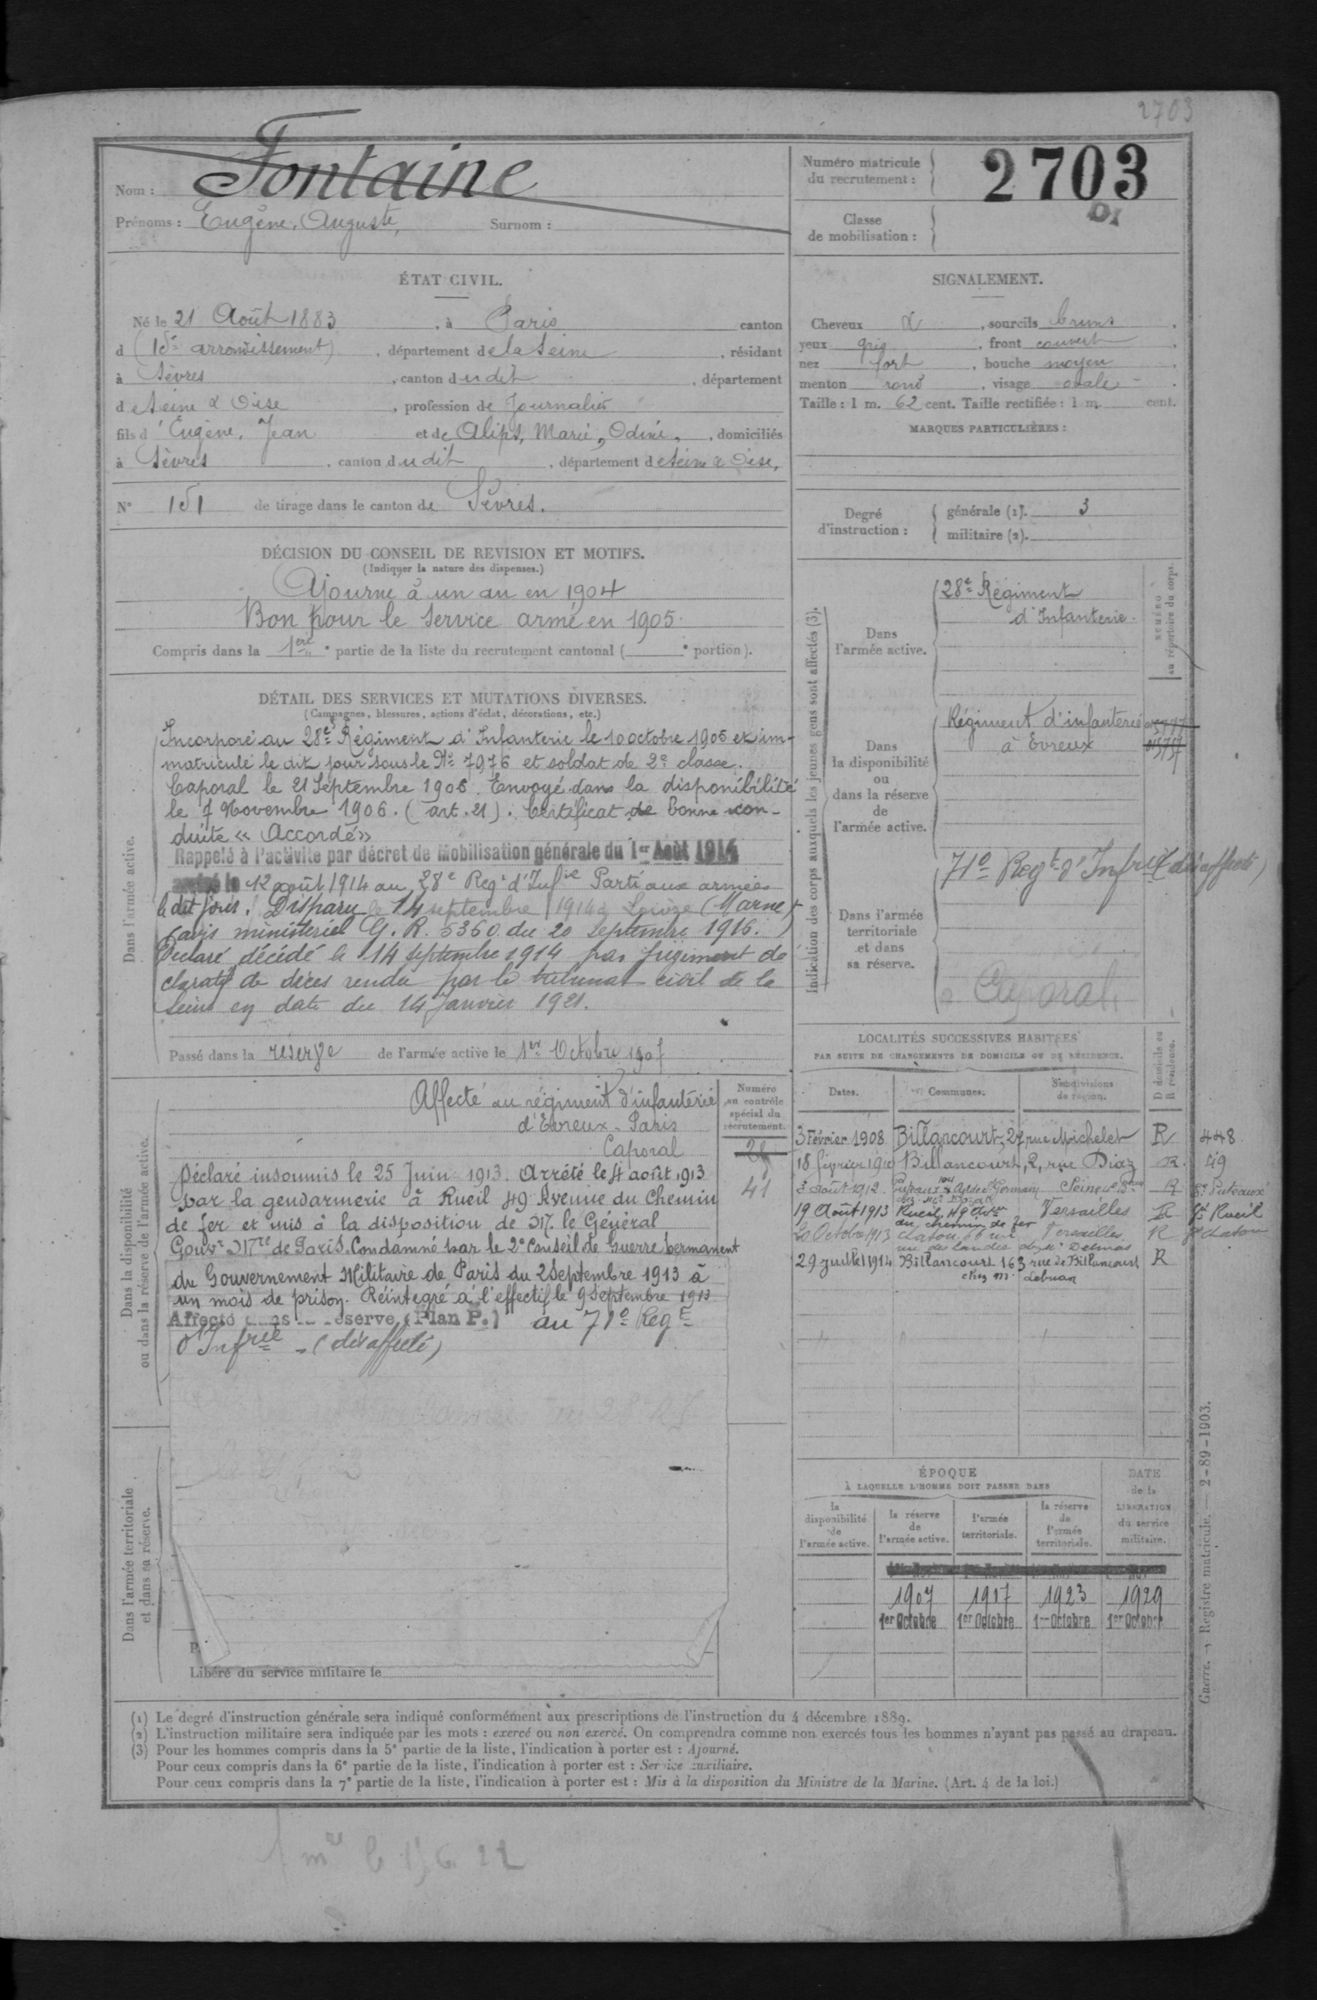 2703
Nom : Fontaine
Prénoms : Eugène, Auguste, Surnom :
Numéro matricule
du recrutement :
2703
Classe
de mobilisation :
ÉTAT CIVIL.
Né le 21 Août 1883, à Paris canton
d (15e arrondissement), département de la Seine, résidant
à Sèvres, canton dudit, département
de Seine & Oise, profession de Journalier
fils d'Eugène, Jean et de Alips, Marie, Odini, domiciliés
à Sèvres, canton dudit, département de Seine & Oise,
N° 151 de tirage dans le canton de Sèvres.
SIGNALEMENT.
Cheveux &, sourcils bruns.
yeux gris, front couvert,
nez fort, bouche moyen,
menton rond, visage ovale.
Taille : 1 m. 62 cent. Taille rectifiée : 1 m. cent.
MARQUES PARTICULIÈRES :
Degré
d'instruction :
générale (1). 3
militaire (2).
DÉCISION DU CONSEIL DE REVISION ET MOTIFS.
(Indiquer la nature des dispenses.)
Ajourné à un an en 1904
Bon pour le service armé en 1905.
Compris dans la 1ère partie de la liste du recrutement cantonal ( portion).
DÉTAIL DES SERVICES ET MUTATIONS DIVERSES.
(Campagnes, blessures, actions d'éclat, décorations, etc.)
Dans l'armée active.
Incorporé au 28e Régiment d'Infanterie le 10 octobre 1905 et im-
matriculé le dit jour sous le No 7976 et soldat de 2e classe.
Caporal le 21 Septembre 1906. Envoyé dans la disponibilité
le 7 Novembre 1906. (art. 21). Certificat de bonne con-
duite « Accordé »
Rappelé à l'activité par décret de Mobilisation générale du 1er Août 1914
arrivé le 12 août 1914 au 28e Regt d'Infie Parti aux armées
le dit jour. Disparu le 14 septembre 1914 à Loivre (Marne)
(avis ministériel G. R. 5360 du 20 septembre 1916.)
Déclaré décédé le 14 septembre 1914 par jugement de
claratif de décès rendu par le tribunal civil de la
Seine en date du 14 Janvier 1921.
Passé dans la réserve de l'armée active le 1er Octobre 1907
Indication des corps auxquels les jeunes gens sont affectés (3).
Dans
l'armée active.
28e Régiment
d'Infanterie.
au répertoire du corps.
Dans
la disponibilité
ou
dans la réserve
de
l'armée active.
Régiment d'infanterie
à Evreux
71e Regt d'Infrie (désaffecté)
Dans l'armée
territoriale
et dans
sa réserve.
Caporal
Dans la disponibilité
ou dans la réserve de l'armée active.
Numéro
au contrôle
spécial du
recrutement.
41
Affecté au régiment d'infanterie
d'Evreux - Paris
Caporal
Déclaré insoumis le 25 Juin 1913. Arrêté le 4 août 1913
par la gendarmerie à Rueil 49 Avenue du Chemin
de fer et mis à la disposition de M. le Général
Gouvr Mre de Paris. Condamné par le 2e Conseil de Guerre permanent
du Gouvernement Militaire de Paris du 2 septembre 1913 à
un mois de prison. Réintégré à l'effectif le 9 septembre 1913
Affecté dans la réserve (Plan P.) au 71e Regt
d'Infrie - (désaffecté)
LOCALITÉS SUCCESSIVES HABITÉES
PAR SUITE DE CHANGEMENTS DE DOMICILE OU DE RÉSIDENCE.
Dates. Communes. Subdivisions
de région.
D domicile ou
R résidence.
3 Février 1908 Billancourt, 27 rue Michelet R 448
18 février 1910 Billancourt, 2, rue Diaz R. 49
3 août 1912. Puteaux Seine R Puteaux
19 Août 1913 Rueil, 49 Ave Versailles R Rueil
du chemin de fer
20 Octobre 1913 Chatou Versailles R Chatou
rue des Landes
29 juillet 1914 Billancourt 163 rue de Billancourt R
chez M.
ÉPOQUE
À LAQUELLE L'HOMME DOIT PASSER DANS
DATE
de la
LIBÉRATION
du service
militaire.
la
disponibilité
de
l'armée active.
la réserve
de
l'armée active.
l'armée
territoriale.
la réserve
de
l'armée
territoriale.
1907 1917 1923 1929
1er Octobre 1er Octobre 1er Octobre 1er Octobre
Dans l'armée territoriale
et dans sa réserve.
Libéré du service militaire le
(1) Le degré d'instruction générale sera indiqué conformément aux prescriptions de l'instruction du 4 décembre 1889.
(2) L'instruction militaire sera indiquée par les mots : exercé ou non exercé. On comprendra comme non exercés tous les hommes n'ayant pas passé au drapeau.
(3) Pour les hommes compris dans la 5e partie de la liste, l'indication à porter est : Ajourné.
Pour ceux compris dans la 6e partie de la liste, l'indication à porter est : Service auxiliaire.
Pour ceux compris dans la 7e partie de la liste, l'indication à porter est : Mis à la disposition du Ministre de la Marine. (Art. 4 de la loi.)
Guerre. — Registre matricule. — 2-89-1903.